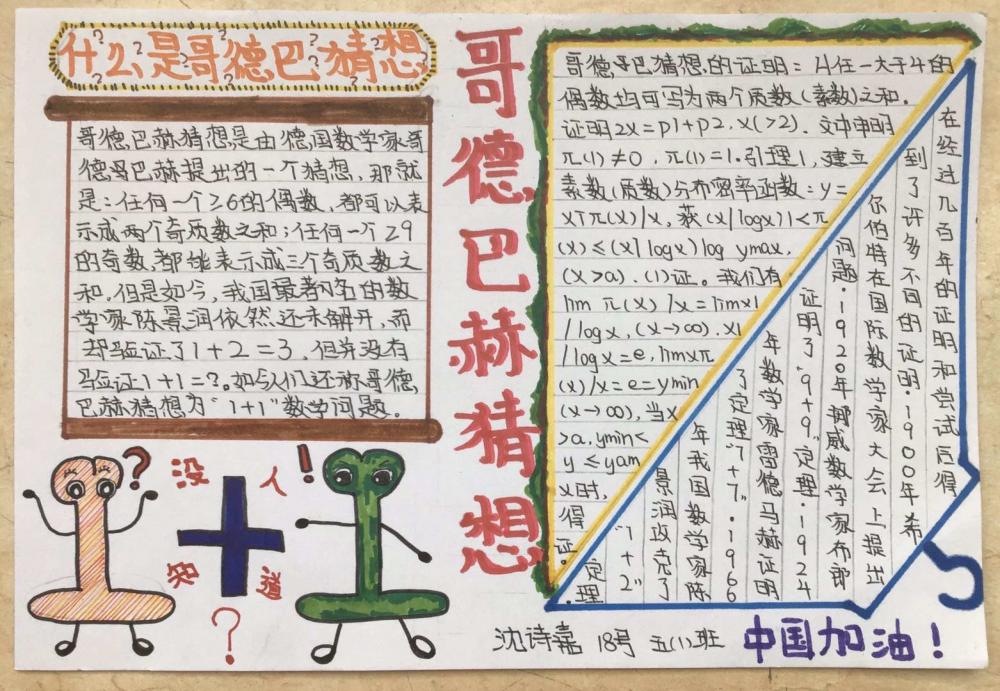 什么是哥德巴猜想
哥德巴赫猜想是由德国数学家哥
德哥巴赫提出的一个猜想，那就
是：任何一个≥6的偶数，都可以表
示成两个奇质数之和；任何一个≥9
的奇数，都能表示成三个奇质数之
和。但是如今，我国最著名的数
学家陈景润依然还未解开，而
却验证了1+2=3，但并没有
验证1+1=?。如今人们还称哥德
巴赫猜想为"1+1"数学问题。
没 人
知 道
?
哥德巴赫猜想
哥德巴猜想的证明：从任一大于4的
偶数均可写为两个质数(素数)之和.
证明2x=p1+p2, x(>2). 文中申明
π(1)≠0, π(1)=1.引理1,建立
素数(质数)分布密率函数：y=
x↑π(x)/x, 获(x|logx)1<π
(x)≤(x/logx)log ymax,
(x>a). (1)证。我们有
lim π(x)/x=limx1
/logx, (x→∞). x1
/logx=e, limxπ
(x)/x=e=ymin
(x→∞), 当x
>a, ymin<
y≤yam
x时,
得
证.
在经过几百年的证明和尝试后得
到了许多不同的证明·1900年希
尔伯特在国际数学家大会上提出
问题·1920年挪威数学家布郎
证明了"9+9"定理·1924
年数学家雷德马赫证明
了定理"7+7"·1966
年我国数学家陈
景润攻克了
"1+2"
定理.
沈诗嘉 18号 五(1)班
中国加油！